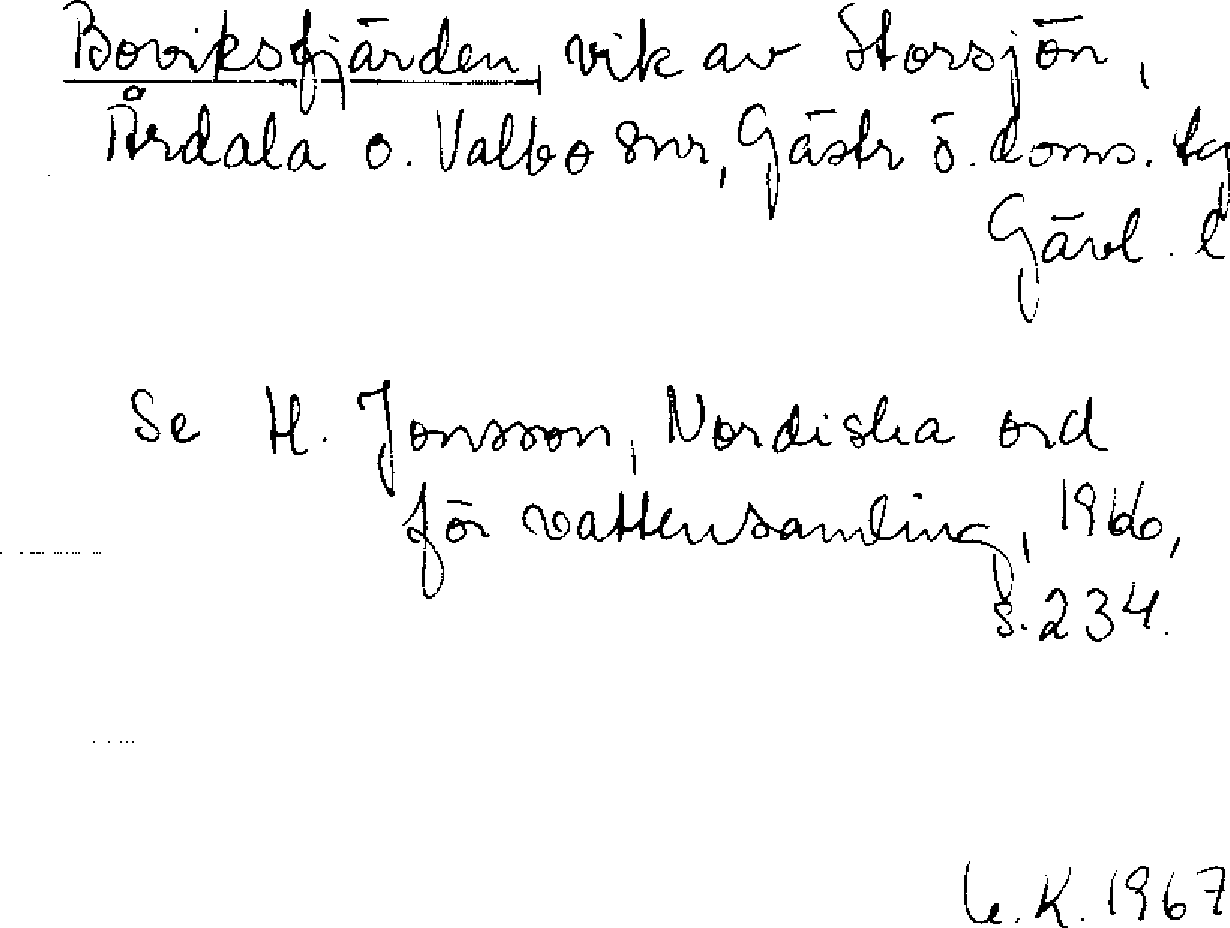 Boviksfjärden, vik av Storsjön,
Årdala o. Valbo snr, Gästr ö. doms. tg
Gävl. l
Se H. Jonsson, Nordiska ord
för vattensamling, 1966,
s. 234.
K. 1967